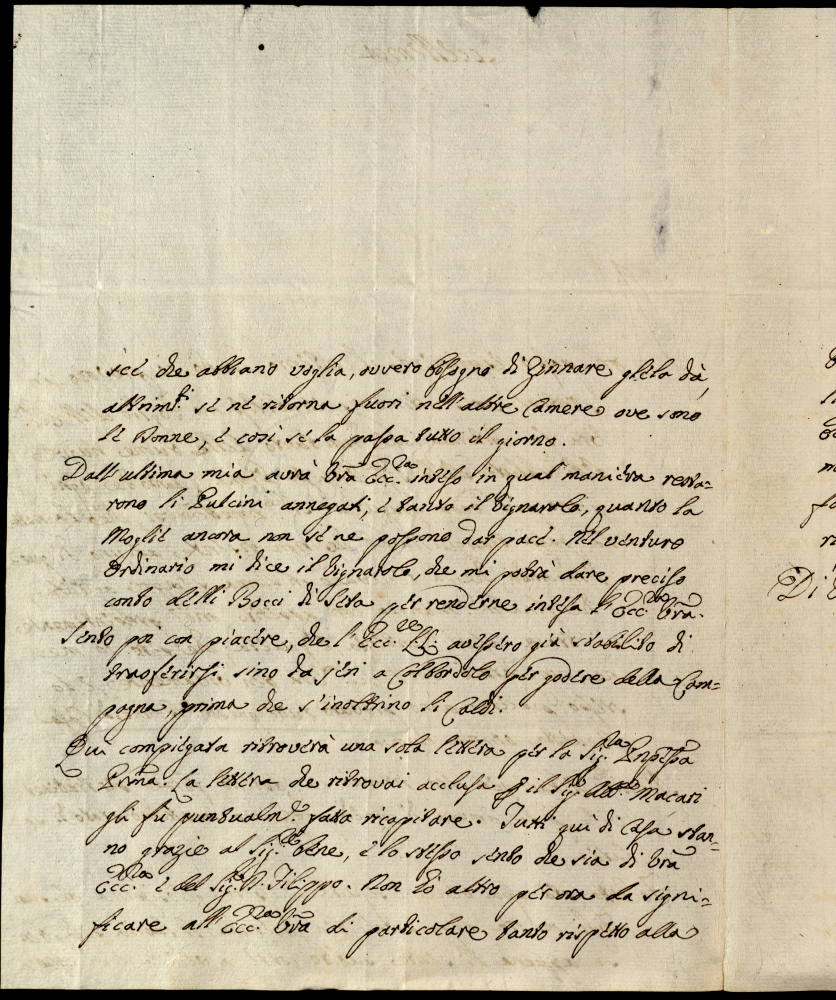 se è che abbiano voglia, ovvero bisogno di Zinnare gliela dà,
altrim.ti se ne ritorna fuori nell'altre Camere ove sono
le Donne, e così se la passa tutto il giorno.
Dall'ultima mia avrà Vra Ecc.za inteso in qual maniera resta=
rono li Pulcini annegati, e tanto il Vignarolo, quanto la
Moglie ancora non se ne possono dar pace. Nel venturo
Ordinario mi dice il Vignarolo, che mi potrà dare preciso
conto delli Bocci di Seta per renderne intesa l'Ecc.za Vra.
Sento poi con piacere, che l'Ecc.ze LL. avessero già stabilito di
trasferirsi sino da jeri a Colbordolo per godere della Cam=
pagna, prima che s'inoltrino li Caldi.
Quì compiegata ritroverà una sola lettera per la Sig.ra Pnpessa
Prma. La lettera che ritrovai acclusa p il Sig. Abb.e Macari
gli fù puntualm.e fatta ricapitare. Tutti quì di Casa stan=
no grazie al Sig.re bene, e lo stesso sento che sia di Vra
Ecc.za e del Sig. D. Filippo. Non hò altro per ora da signi=
ficare all'Ecc.za Vra di particolare tanto rispetto alla